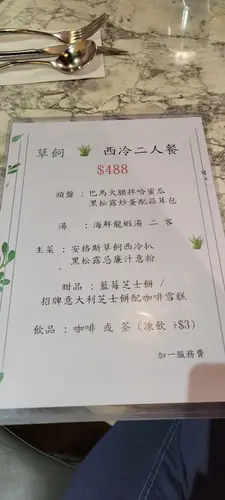 草飼 西冷二人餐
$488
頭盤 : 巴馬火腿拌哈蜜瓜
黑松露炒蛋配蒜茸包
湯 : 海鮮龍蝦湯 二 客
主菜 : 安格斯草飼西冷扒
黑松露忌廉汁意粉
甜品 : 藍莓芝士餅 /
招牌意大利芝士餅配咖啡雪糕
飲品 : 咖啡 或 茶 (凍飲 +$3)
加一服務費